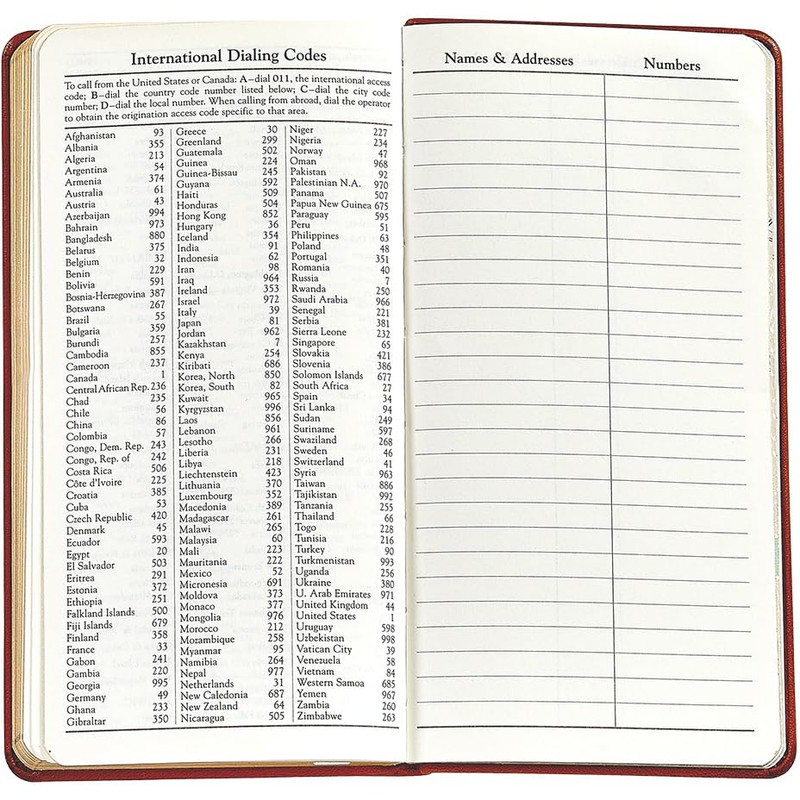 International Dialing Codes
To call from the United States or Canada: A–dial 011, the international access
code; B–dial the country code number listed below; C–dial the city code
number; D–dial the local number. When calling from abroad, dial the operator
to obtain the origination access code specific to that area.
Afghanistan 93
Albania 355
Algeria 213
Argentina 54
Armenia 374
Australia 61
Austria 43
Azerbaijan 994
Bahrain 973
Bangladesh 880
Belarus 375
Belgium 32
Benin 229
Bolivia 591
Bosnia-Herzegovina 387
Botswana 267
Brazil 55
Bulgaria 359
Burundi 257
Cambodia 855
Cameroon 237
Canada 1
Central African Rep. 236
Chad 235
Chile 56
China 86
Colombia 57
Congo, Dem. Rep. 243
Congo, Rep. of 242
Costa Rica 506
Côte d'Ivoire 225
Croatia 385
Cuba 53
Czech Republic 420
Denmark 45
Ecuador 593
Egypt 20
El Salvador 503
Eritrea 291
Estonia 372
Ethiopia 251
Falkland Islands 500
Fiji Islands 679
Finland 358
France 33
Gabon 241
Gambia 220
Georgia 995
Germany 49
Ghana 233
Gibraltar 350
Greece 30
Greenland 299
Guatemala 502
Guinea 224
Guinea-Bissau 245
Guyana 592
Haiti 509
Honduras 504
Hong Kong 852
Hungary 36
Iceland 354
India 91
Indonesia 62
Iran 98
Iraq 964
Ireland 353
Israel 972
Italy 39
Japan 81
Jordan 962
Kazakhstan 7
Kenya 254
Kiribati 686
Korea, North 850
Korea, South 82
Kuwait 965
Kyrgyzstan 996
Laos 856
Lebanon 961
Lesotho 266
Liberia 231
Libya 218
Liechtenstein 423
Lithuania 370
Luxembourg 352
Macedonia 389
Madagascar 261
Malawi 265
Malaysia 60
Mali 223
Mauritania 222
Mexico 52
Micronesia 691
Moldova 373
Monaco 377
Mongolia 976
Morocco 212
Mozambique 258
Myanmar 95
Namibia 264
Nepal 977
Netherlands 31
New Caledonia 687
New Zealand 64
Nicaragua 505
Niger 227
Nigeria 234
Norway 47
Oman 968
Pakistan 92
Palestinian N.A. 970
Panama 507
Papua New Guinea 675
Paraguay 595
Peru 51
Philippines 63
Poland 48
Portugal 351
Romania 40
Russia 7
Rwanda 250
Saudi Arabia 966
Senegal 221
Serbia 381
Sierra Leone 232
Singapore 65
Slovakia 421
Slovenia 386
Solomon Islands 677
South Africa 27
Spain 34
Sri Lanka 94
Sudan 249
Suriname 597
Swaziland 268
Sweden 46
Switzerland 41
Syria 963
Taiwan 886
Tajikistan 992
Tanzania 255
Thailand 66
Togo 228
Tunisia 216
Turkey 90
Turkmenistan 993
Uganda 256
Ukraine 380
U. Arab Emirates 971
United Kingdom 44
United States 1
Uruguay 598
Uzbekistan 998
Vatican City 39
Venezuela 58
Vietnam 84
Western Samoa 685
Yemen 967
Zambia 260
Zimbabwe 263
Names & Addresses
Numbers